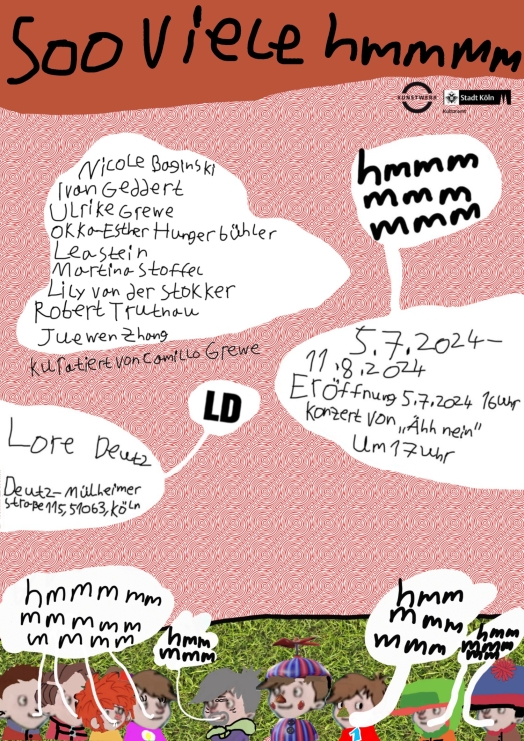 soo viele hmmmmm
KUNSTWERK
Stadt Köln
Kulturamt
Nicole Baginski
Ivan Geddert
Ulrike Grewe
Okka-Esther Hungerbühler
Lea stein
Martina Stoffel
Lily van der Stokker
Robert Trutnau
Juewen Zhang
kuratiert von Camillo Grewe
hmmm
mmm
mmm
5.7.2024-
11.8.2024
Eröffnung 5.7.2024 16 uhr
Konzert von „Ähh nein"
um 17 uhr
LD
Lore Deutz
Deutz-Mülheimer
straße 115, 51063, Köln
hmmmmm
mmmmm
mmmm
hmm
mmm
hmm
mmm
mmm
hmm
mmm
mmm